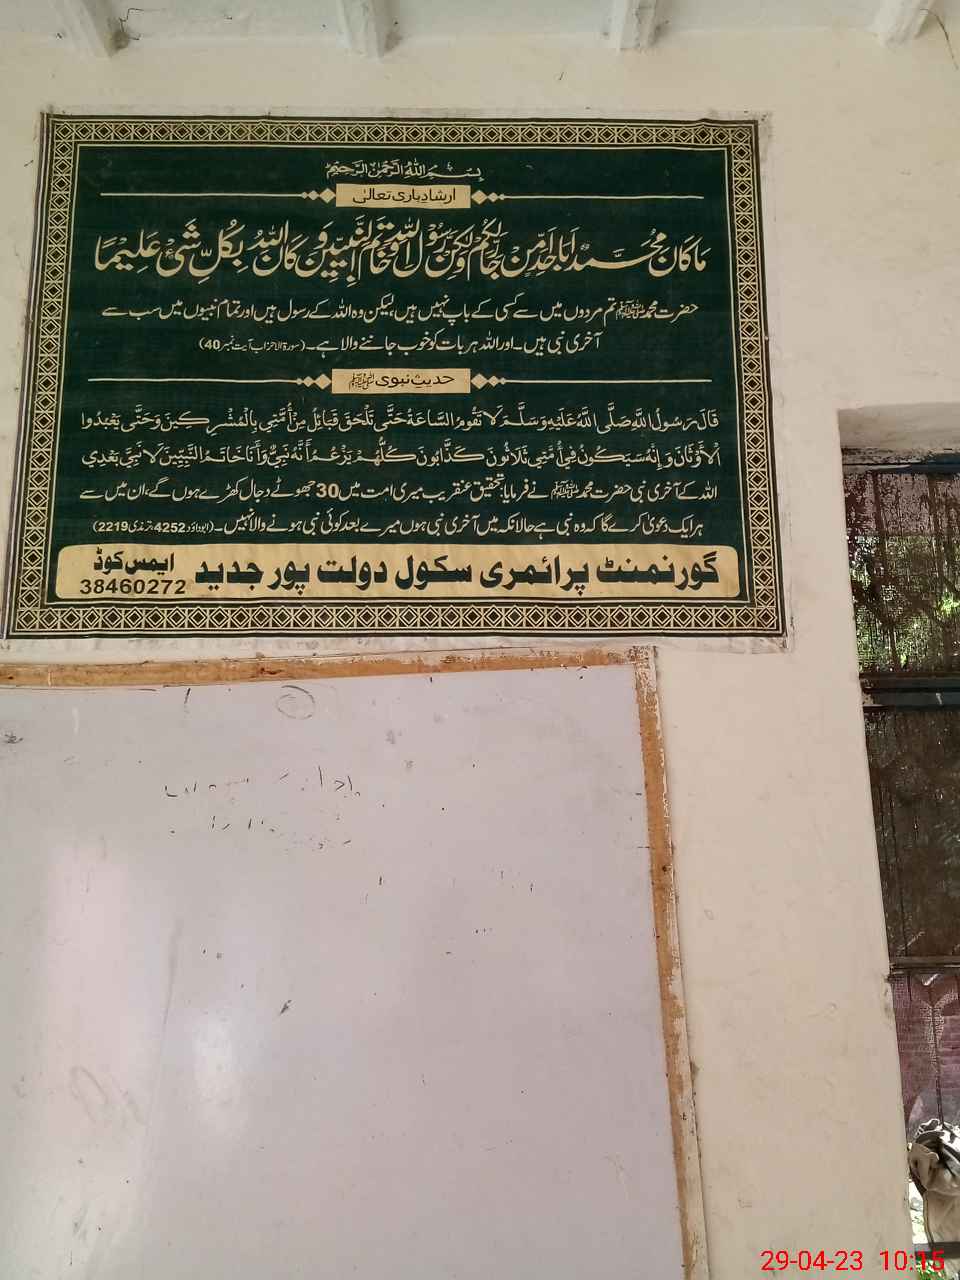 بِسْمِ اللّٰهِ الرَّحْمٰنِ الرَّحِيْمِ
ارشادِ باری تعالیٰ
مَا كَانَ مُحَمَّدٌ اَبَا اَحَدٍ مِّنْ رِّجَالِكُمْ وَلٰكِنْ رَّسُوْلَ اللّٰهِ وَخَاتَمَ النَّبِيّٖنَ وَكَانَ اللّٰهُ بِكُلِّ شَیْءٍ عَلِيْمًا
حضرت محمد ﷺ تم مردوں میں سے کسی کے باپ نہیں ہیں، لیکن وہ اللہ کے رسول ہیں اور تمام نبیوں میں سب سے
آخری نبی ہیں۔ اور اللہ ہر بات کو خوب جاننے والا ہے۔ (سورۃ الاحزاب آیت نمبر 40)
حدیثِ نبوی ﷺ
قَالَ رَسُولُ اللَّهِ صَلَّى اللَّهُ عَلَيْهِ وَسَلَّمَ لَا تَقُومُ السَّاعَةُ حَتَّى تَلْحَقَ قَبَائِلُ مِنْ أُمَّتِي بِالْمُشْرِكِينَ وَحَتَّى يَعْبُدُوا
الْأَوْثَانَ وَإِنَّهُ سَيَكُونُ فِي أُمَّتِي ثَلَاثُونَ كَذَّابُونَ كُلُّهُمْ يَزْعُمُ أَنَّهُ نَبِيٌّ وَأَنَا خَاتَمُ النَّبِيِّينَ لَا نَبِيَّ بَعْدِي
اللہ کے آخری نبی حضرت محمد ﷺ نے فرمایا: تحقیق عنقریب میری امت میں 30 جھوٹے دجال کھڑے ہوں گے، ان میں سے
ہر ایک دعویٰ کرے گا کہ وہ نبی ہے حالانکہ میں آخری نبی ہوں میرے بعد کوئی نبی ہونے والا نہیں۔ (ابوداؤد 4252، ترمذی 2219)
گورنمنٹ پرائمری سکول دولت پور جدید ایمس کوڈ
38460272
29-04-23 10:15